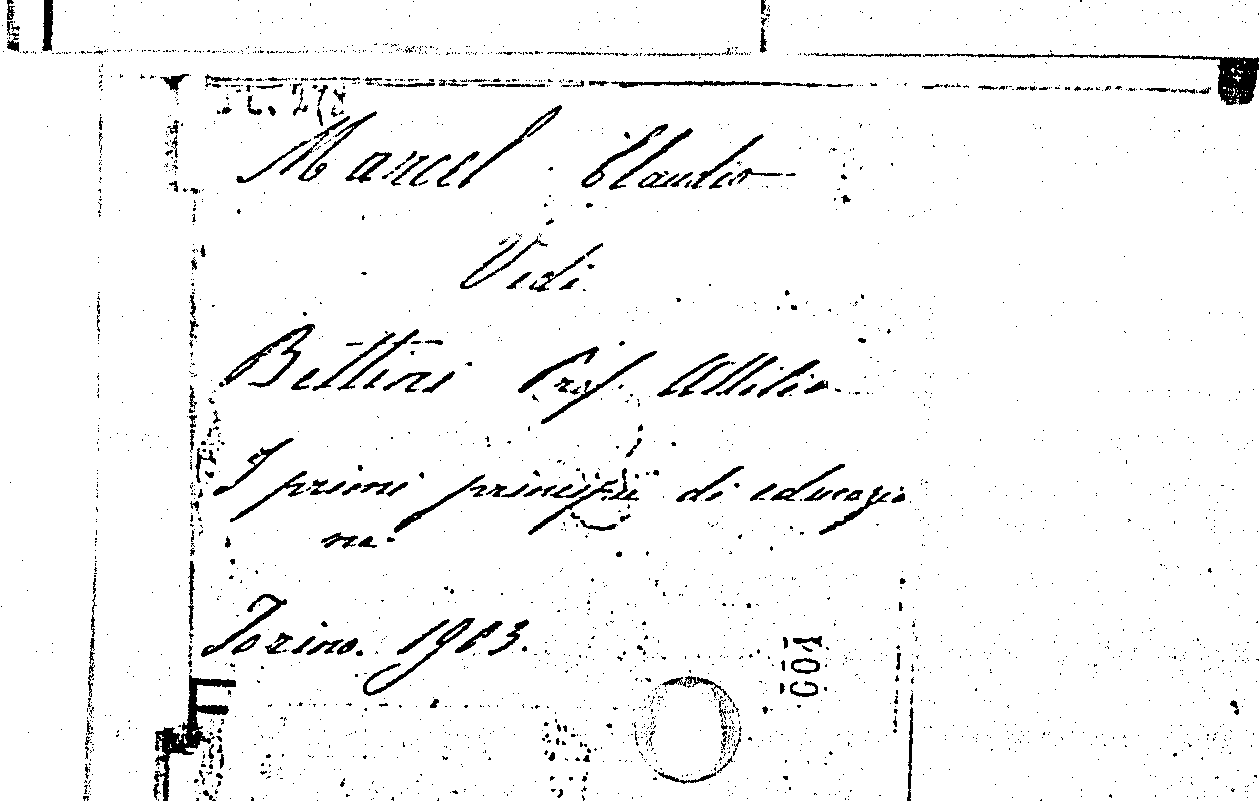 Marcel Claudio
Vedi
Bettini Prof. Attilio
I primi principii di educazio
ne.
Torino. 1903.
001